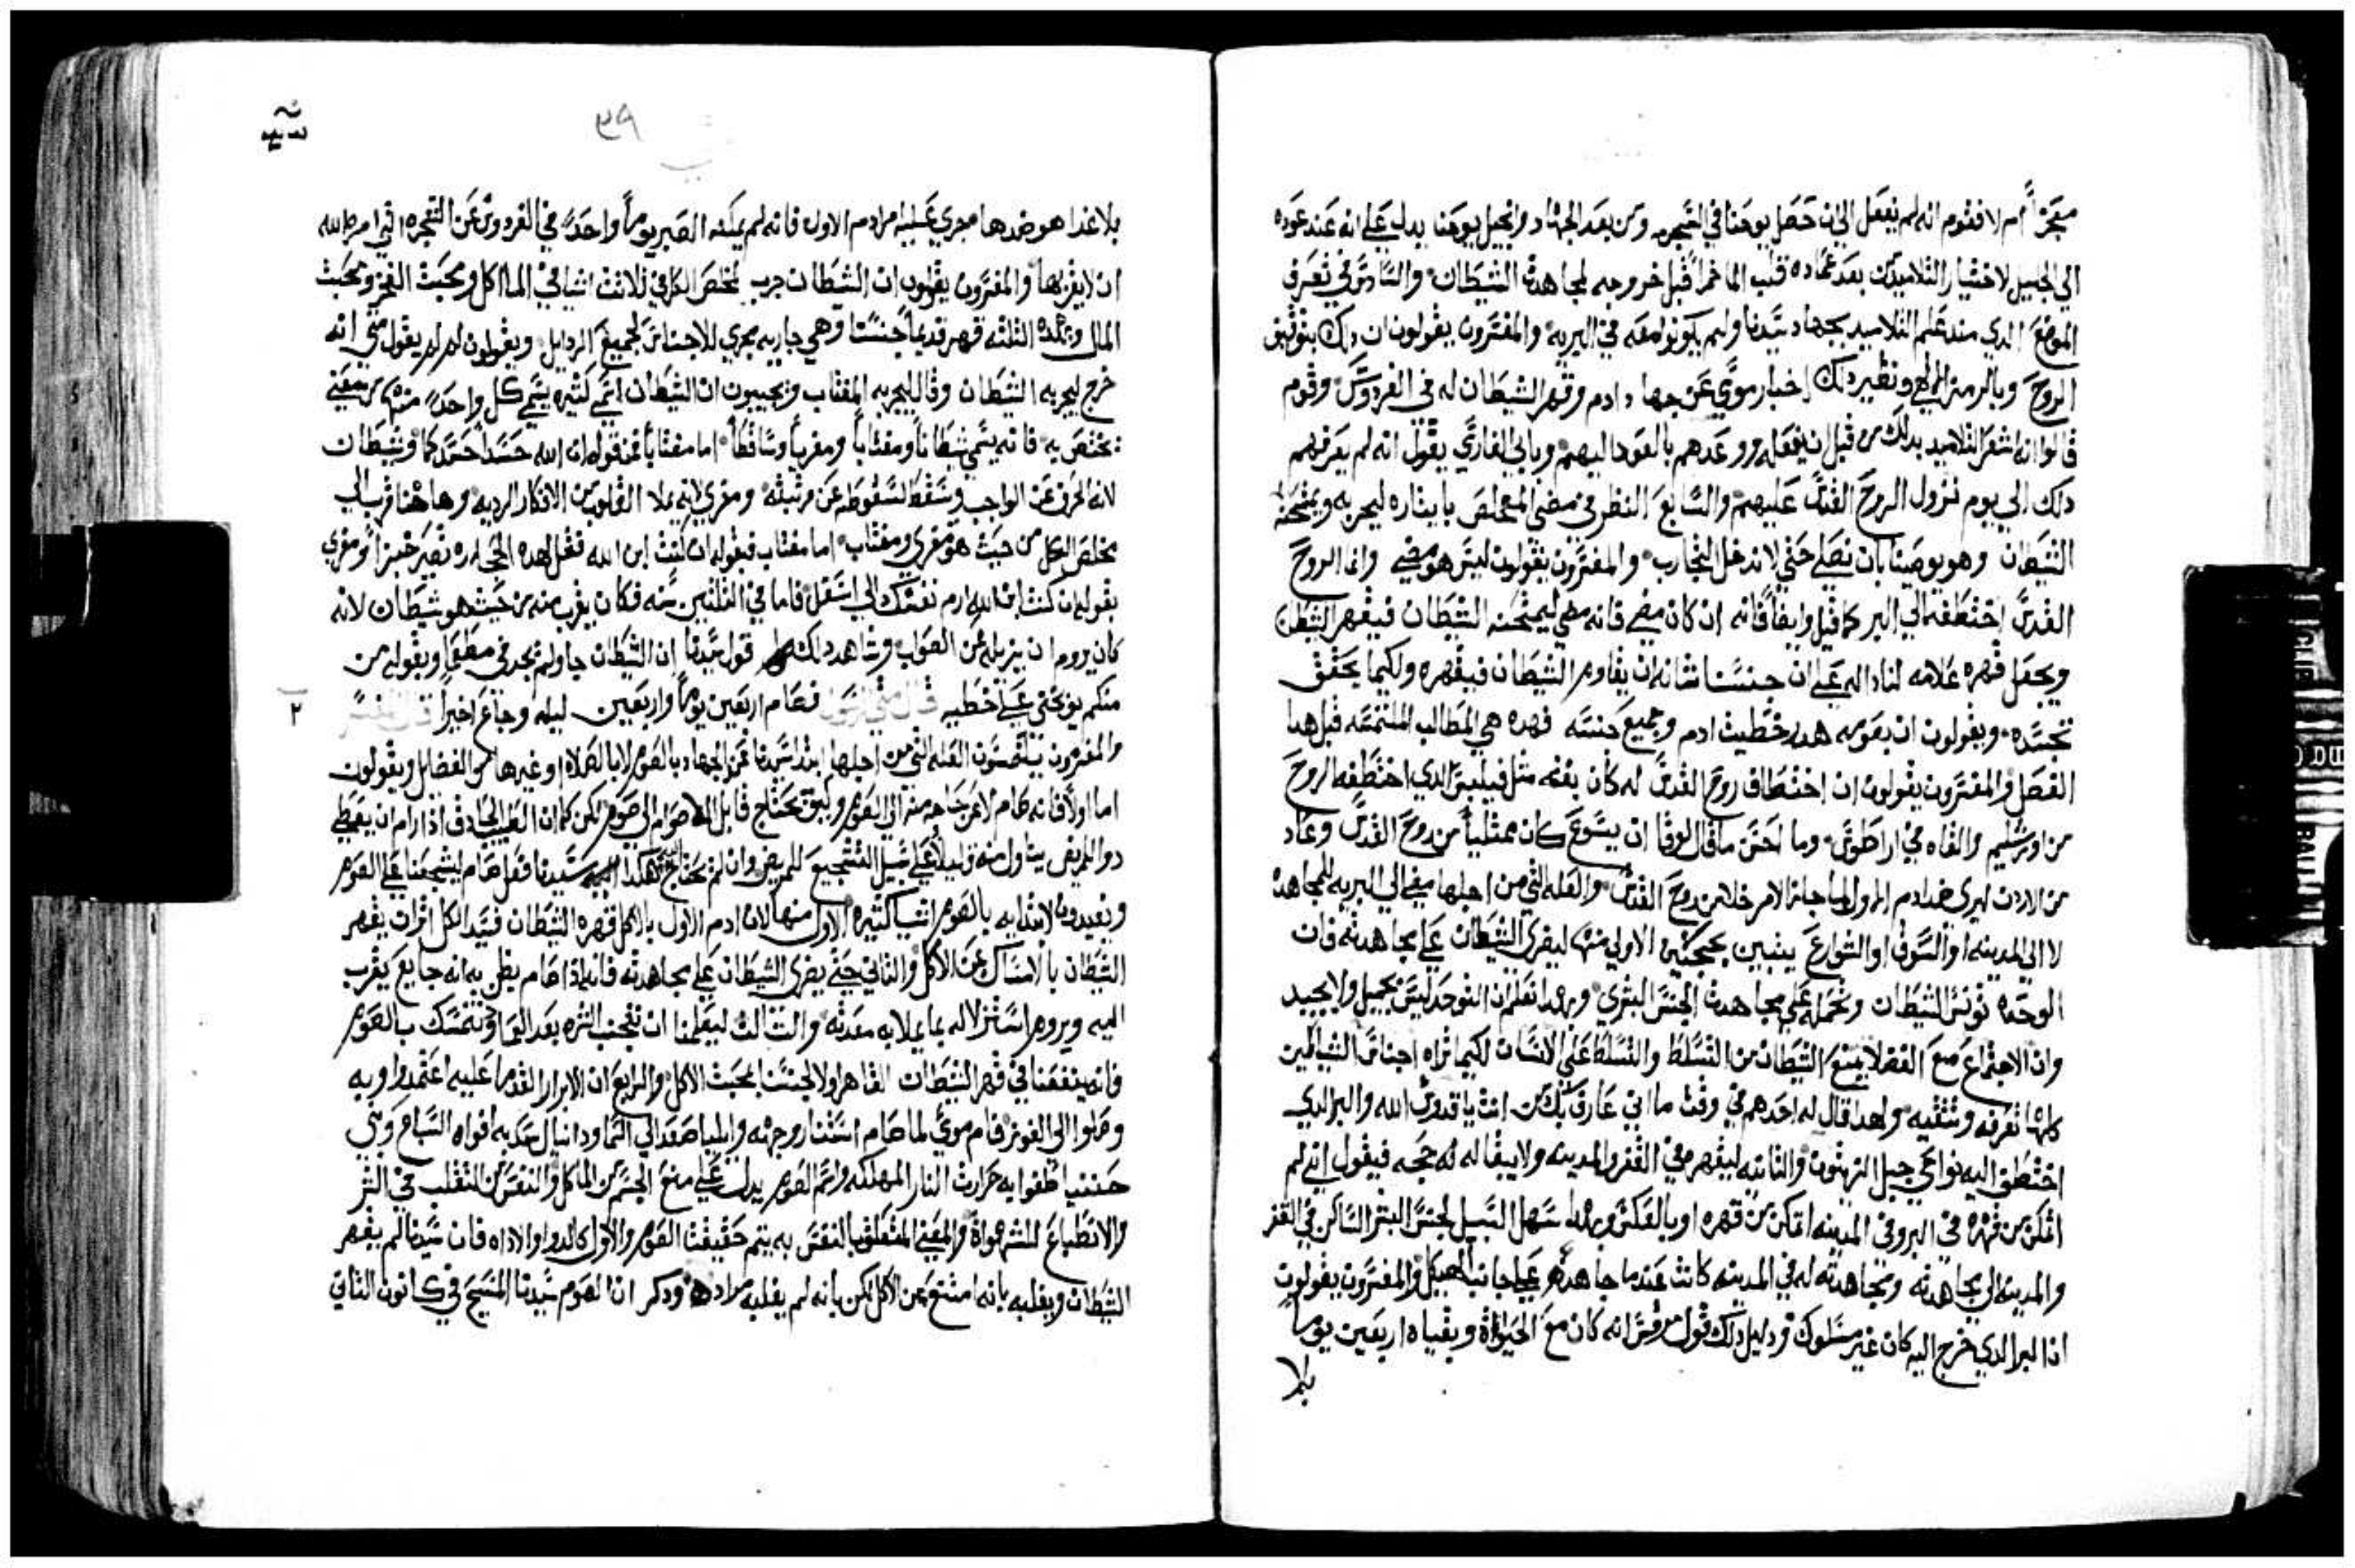 معجزاً ام لا فقوم انه لم يفعل الى ان حصل يوحنا في السجن ومن بعد الجهاد وانجيل يوحنا يدل على انه عند عوده
الي الجليل لاختيار التلاميذ من بعد عماده قلب الما خمراً قبل خروجه لمجاهدة الشيطان والسادس في تعرف
الموضع الدي منه علم التلاميد بجهاد سيدنا ولم يكونوا معه في البريه والمفسرون يقولون ان دلك بتوفيق
الروح وبالرمز الالهي ونظير دلك اخبار موسي عن جهاد ادم وقهر الشيطان له في الفردوس وقوم
قالوا انه اشعر التلاميد بدلك من قبل ان يفعله ووعدهم بالعود اليهم وباي الفاري يقول انه لم يعرفهم
دلك الي يوم نزول الروح القدس عليهم والسابع النظر في مضي المخلص بايثاره ليجربه ويمتحنه
الشيطان وهو يوصينا بان نصلي حتي لا ندخل التجارب والمفسرون يقولون ليس هو مضي وانما الروح
القدس اختطفه الي البر كما قيل وايضاً فانه ان كان مضي فانه مضي ليمتحنه الشيطان فيقهر الشيطان
ويجعل قهره علامه لنا داله علي ان جنسنا شانه ان يقاوم الشيطان فيقهره ولكيما يحقق
تجسده ويقولون ان بصومه هدم خطيت ادم وجميع جنسه فهده هي المطالب الملتمسه قبل هدا
الفصل والمفسرون يقولون ان اختطاف روح القدس له كان بغته مثل فيلبس الدي اختطفه الروح
من اورشليم والقاه في اراطوس وما احسن ما قال لوقا ان يسوع كان ممتلياً من روح القدس وعاد
من الاردن ليري ضد ادم الاول لما جاز الامر خلا من روح القدس والعله التي من اجلها مضي الي البريه للمجاهده
لا الي المدينه او السوق او الشوارع يبين بحجج كثيره الاولي منها ليغري الشيطان علي مجاهدته فان
الوحده تونس الشيطان وتحمله علي مجاهدة الجنس البشري وبهدا نعلم ان التوحد ليس بجميل ولا بجيد
وان الاجتماع مع الفضلا يمنع الشيطان من التسلط والتسلط علي الانسان لكيما تراه اجناس الشياطين
كلها تعرفه وتتقيه ولهدا قال له احدهم في وقت ما اني عارف بك من انت يا قدوس الله والبر الدي
اختطف اليه نواحي جبل الزيتون والثانيه ليقهره في القفر والمدينه ولا يبقا له حجه فيقول اني لم
اتمكن من قهره في البر وفي المدينه اتمكن من قهره او بالعكس وبهدا سهل السبيل لجنس البشر الساكن في القفر
والمدينه الي مجاهدته ومجاهدته له في المدينه كانت عندما جاهده علي جانب الهيكل والمفسرون يقولون
ان البر الدي خرج اليه كان غير مسلوك ودليل دلك قول مرقس انه كان مع الحيواناة وبقياه اربعين يوماً
بلا
٣٩
بلا غدا هو ضدها مجري عليه امر ادم الاول فانه لم يمكنه الصبر يوماً واحداً في الفردوس عن الشجره التي امره الله
ان لا يقربها والمفسرون يقولون ان الشيطان جرب مخلص الكل في ثلاثت اشيا في الماكل ومحبت الفخر ومحبت
المال وبهده الثلثه قهر قديماً جنسنا وهي جاريه مجري الاجناس لجميع الردايل ويقولون لم لم يقول متي انه
خرج ليجربه الشيطان وقال ليجربه المغتاب ويجيبون ان الشيطان اسمي كثيره يسمي كل واحد منها من معني
يختص به فانه يسمي شيطاناً ومغتاباً ومغرياً وساقطاً اما مغتاباً فمن قوله ان الله حسد احسدكما وشيطان
لانه انحرف عن الواجب وسقط لسقوطه عن مرتبته ومغري لانه يملا القلوب من الافكار الرديه وها هنا قرب الي
مخلص الكل من حيث هو مغري ومغتاب اما مغتاب فبقوله ان كنت ابن الله فقل لهده الحجاره تصير خبزاً ومغري
بقوله ان كنت ابن الله ارم نفسك الي اسفل فاما في الثلثين سنه فكان يقرب منه من حيث هو شيطان لانه
كان يروم ان يزيله عن الصواب وشاهد دلك قول سيدنا ان الشيطان جا ولم يجد في مطعناً وبقوله من
منكم يوبخني علي خطيه قال متي الرسول فصام اربعين يوماً واربعين ليله وجاع اخيراً قال المفسر
٢
والمفسرون يلتمسون العله التي من اجلها ابتدا سيدنا عند الجهاد بالصوم لا بالصلاه او غيرها من الفضايل ويقولون
اما اولاً فانه صام لا عن حاجه منه الي الصوم وليس يحتاج قابل الاصوام الي صوم لكن كما ان الطبيب الحادق اذا رام ان يعطي
دوا للمريض يتناول منه قليلاً علي سبيل التشجيع للمريض وان لم يحتاج اليه هكدا سيدنا فعل صام ليشجعنا علي الصوم
ويعيدون لابتدايه بالصوم اسباب كثيره الاول منها لان ادم الاول بالاكل قهره الشيطان فسيد الكل اثر ان يقهر
الشيطان بالامساك عن الاكل والثاني حتي يغري الشيطان علي مجاهدته فانه اذا صام يظن به انه جايع يقرب
اليه ويروم استنزلاله بما يملا به معدته والثالث ليعلمنا ان نتجنب الشره بعد العماد ونتمسك بالصوم
فانه ينفعنا في قهر الشيطان القاهر اولا لجنسنا بمحبت الاكل والرابع ان الابرار القدما عليه اعتمدوا وبه
وصلوا الي الفوز فام موسي لما صام استنار وجهه وايليا صعد الي السما ودانيال سد به افواه السباع وبني
حننيا اطفوا به حرارت النار المهلكه واسم الصوم يدل علي منع الجسم من الماكل والنفس من التقلب في الشر
والانطباع للشهواة والمعني المتعلق بالنفس به يتم حقيقت الصوم والاول كالدوا والاداه فان سيدنا لم يقهر
الشيطان ويغلبه بانه امتنع عن الاكل لكن بانه لم يغلبه مراده ودكر ان الصوم سيدنا المسيح في كانون الثاني